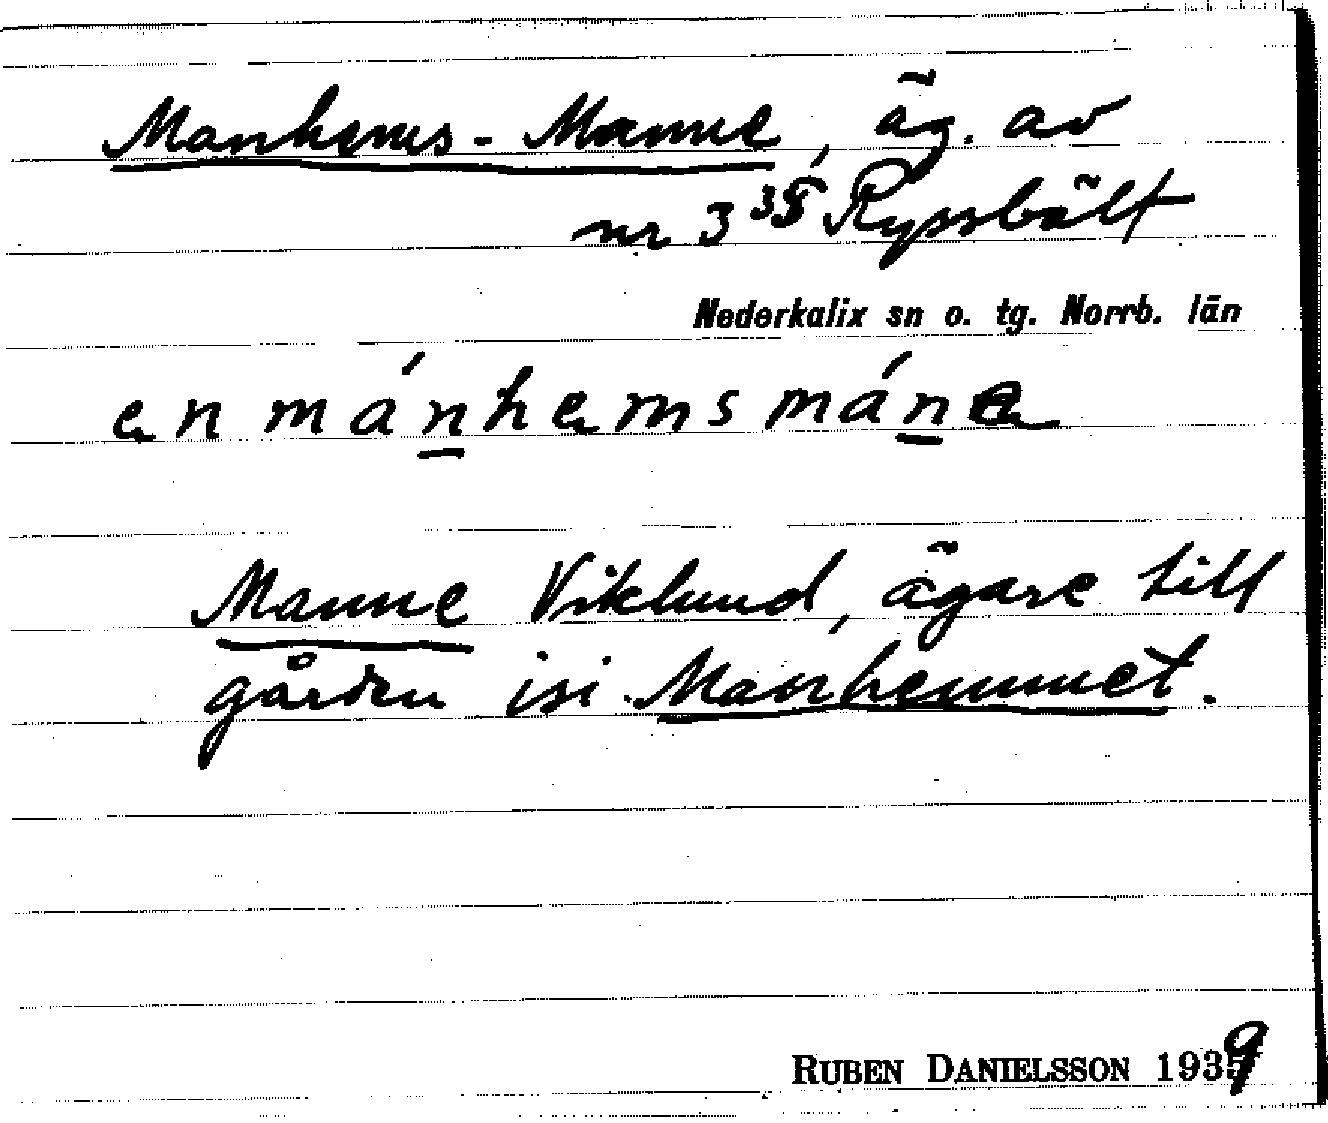 Manhems-Manne, äg. av
nr 3³⁵ Ryssbält
Nederkalix sn o. tg. Norrb. län
en mánhemsmáne
Manne Viklund, ägare till
gården isi Manhemmet.
RUBEN DANIELSSON 1939